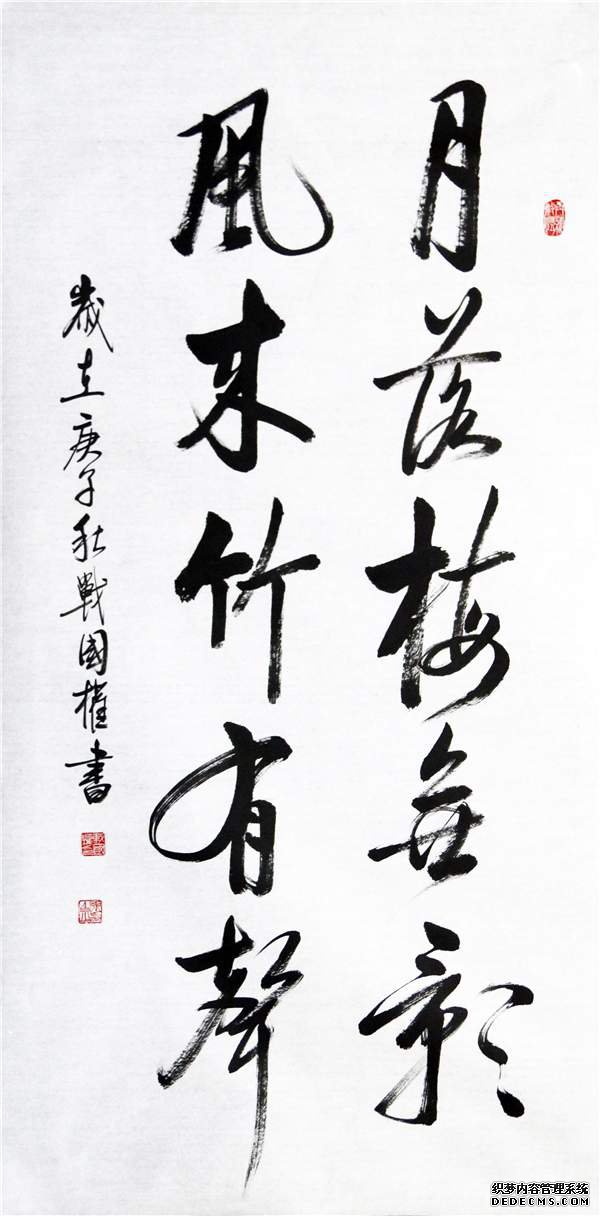 月落梅無影
風来竹有聲
歲在庚子秋戰國權書
织梦内容管理系统
DEDECMS.COM